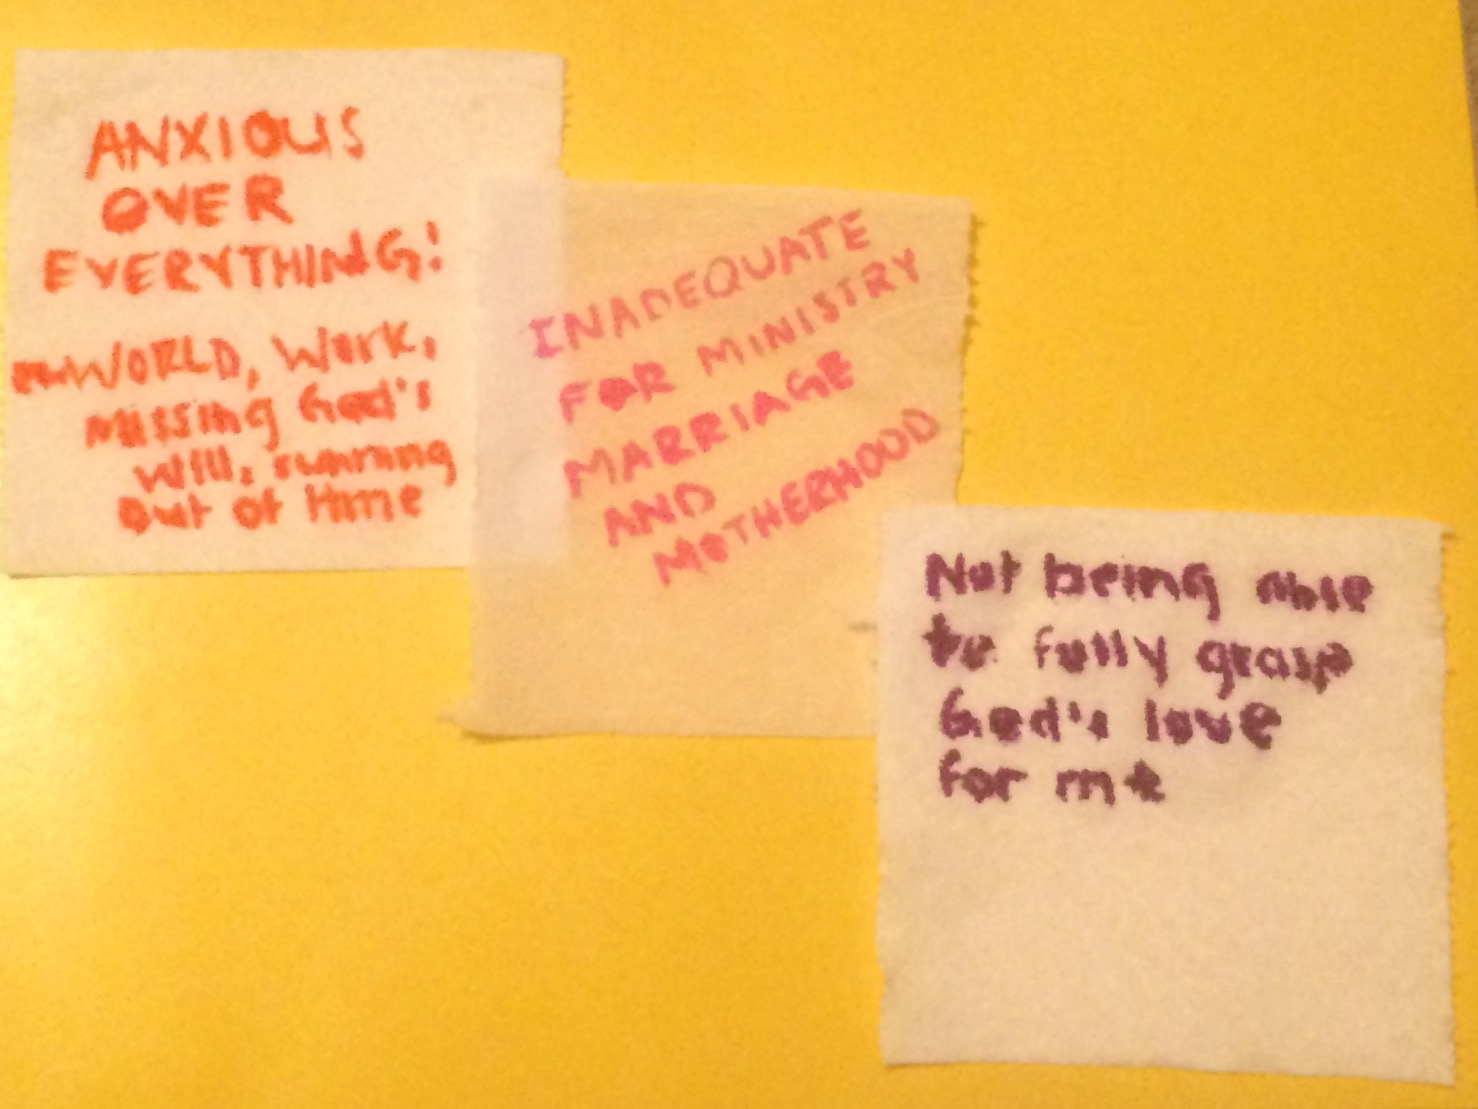 ANXIOUS
OVER
EVERYTHING!
WORLD, Work,
Missing God's
Will, running
out of time
INADEQUATE
FOR MINISTRY
MARRIAGE
AND
MOTHERHOOD
Not being able
to fully grasp
God's love
for me